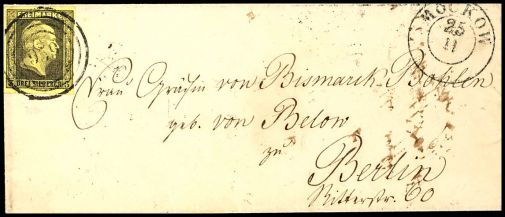 FREIMARKE
MOCKOW
25
11
Frau Gräfin von Bismarck Bohlen
geb. von Below
zu
Berlin
Ritterstr. 60